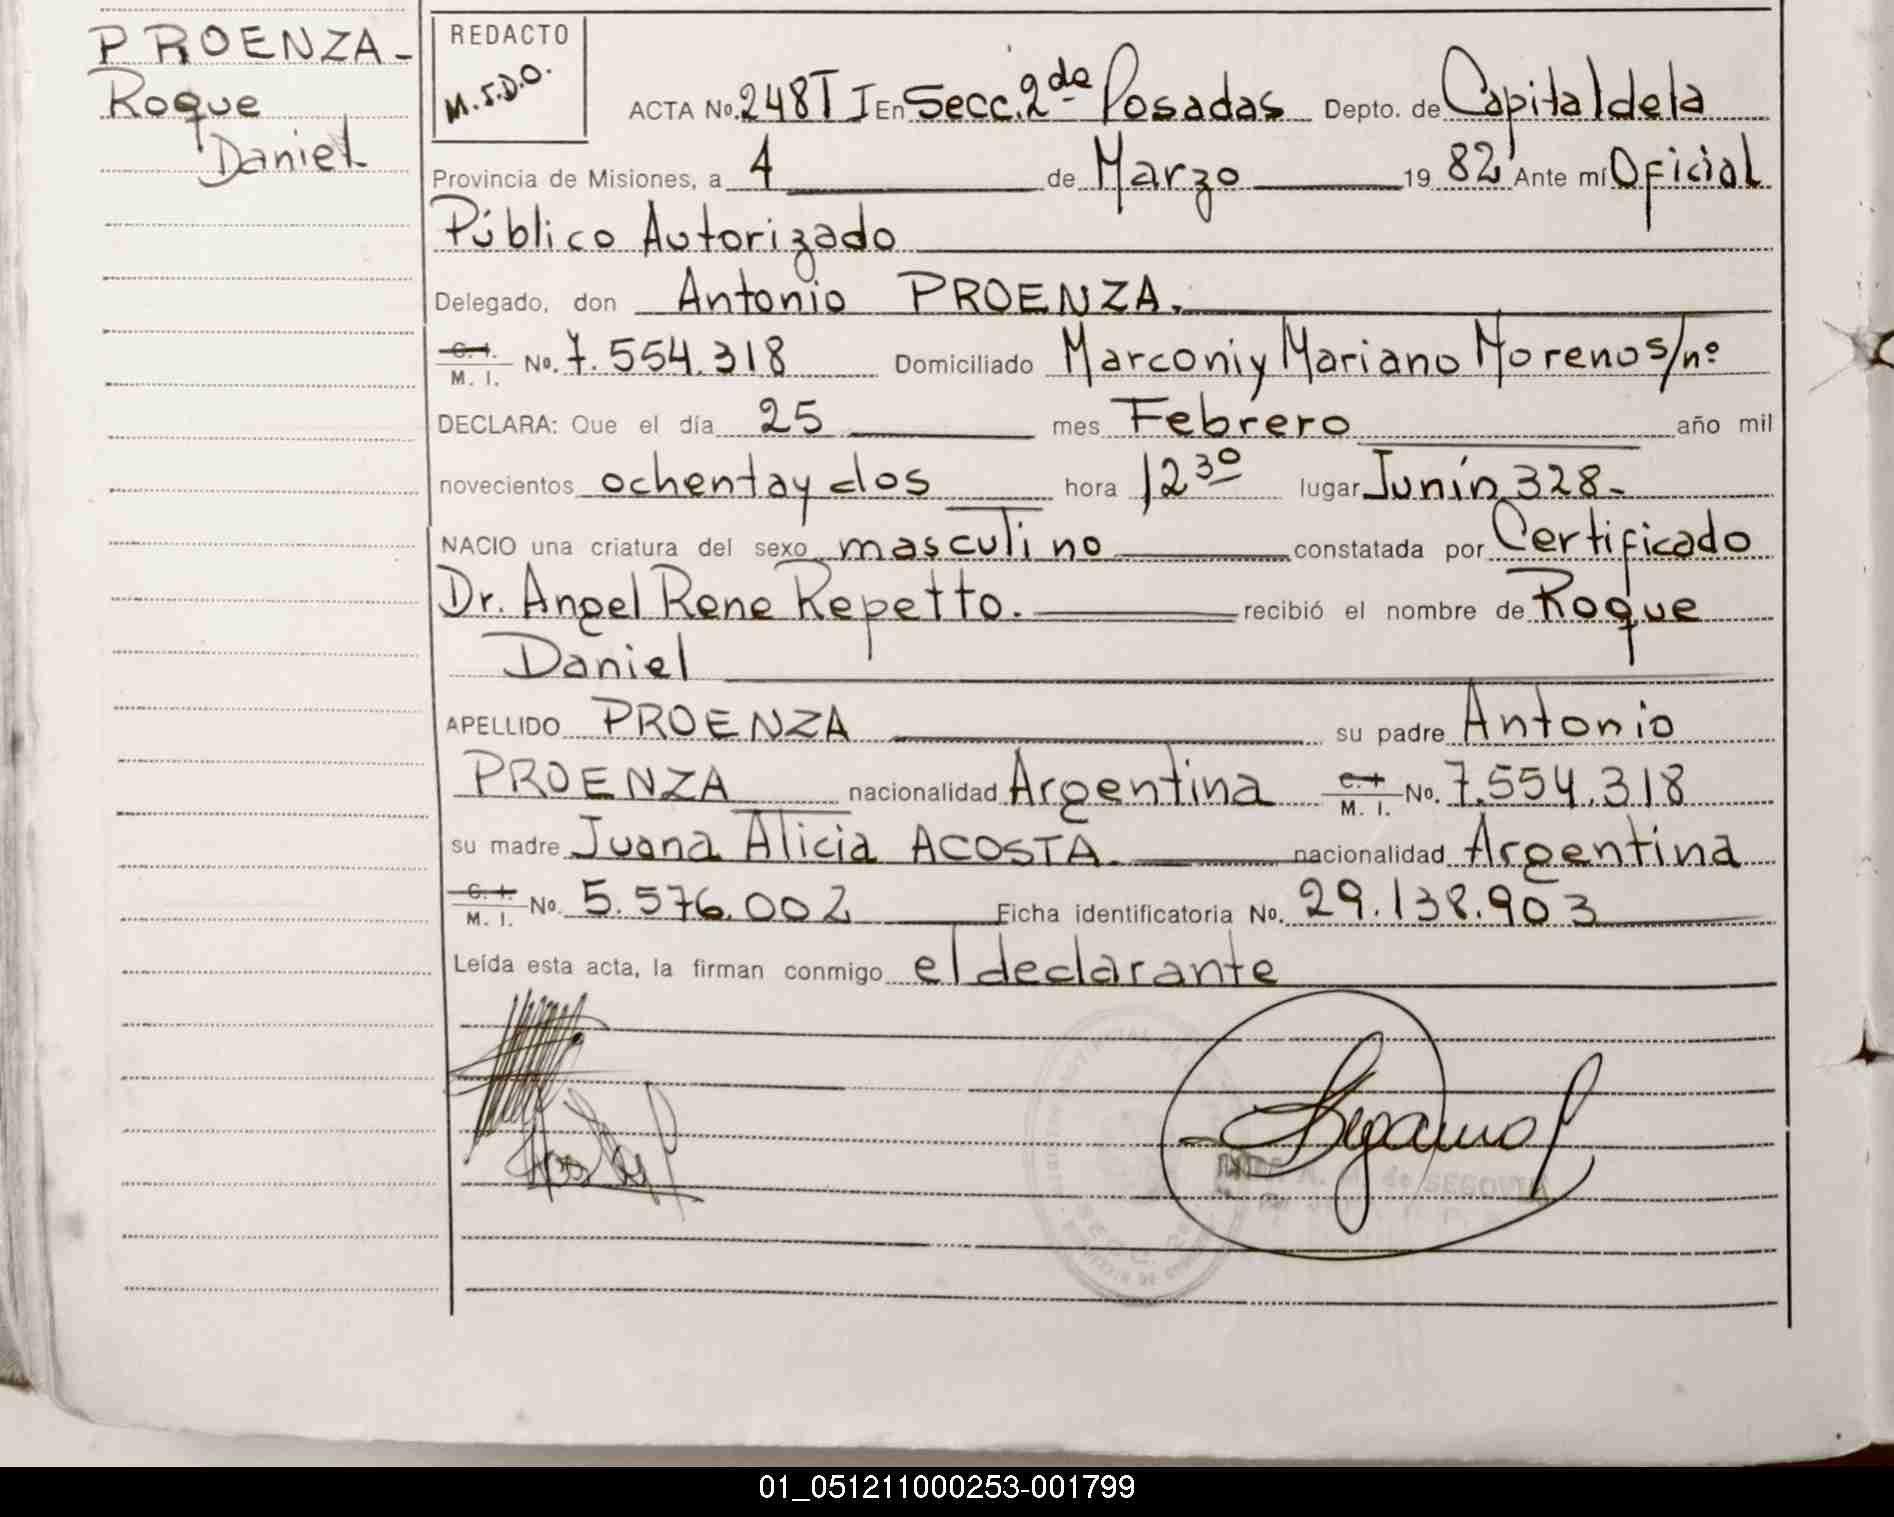 PROENZA-
Roque
Daniel
REDACTO
M.S.D.O.
ACTA No. 248 T I En Secc. 2da Posadas Depto. de Capital de la
Provincia de Misiones, a 4 de Marzo 19 82 Ante mí Oficial
Público Autorizado
Delegado, don Antonio PROENZA.
C. I. M. I. No. 7.554.318 Domiciliado Marconi y Mariano Moreno s/nº
DECLARA: Que el día 25 mes Febrero año mil
novecientos ochenta y dos hora 12 30 lugar Junín 328-
NACIO una criatura del sexo masculino constatada por Certificado
Dr. Angel Rene Repetto. recibió el nombre de Roque
Daniel
APELLIDO PROENZA su padre Antonio
PROENZA nacionalidad Argentina C. I. M. I. No. 7.554.318
su madre Juana Alicia ACOSTA nacionalidad Argentina
C. I. M. I. No. 5.576.002 Ficha identificatoria No. 29.138.903
Leída esta acta, la firman conmigo el declarante
de SEGOVIA
01_051211000253-001799